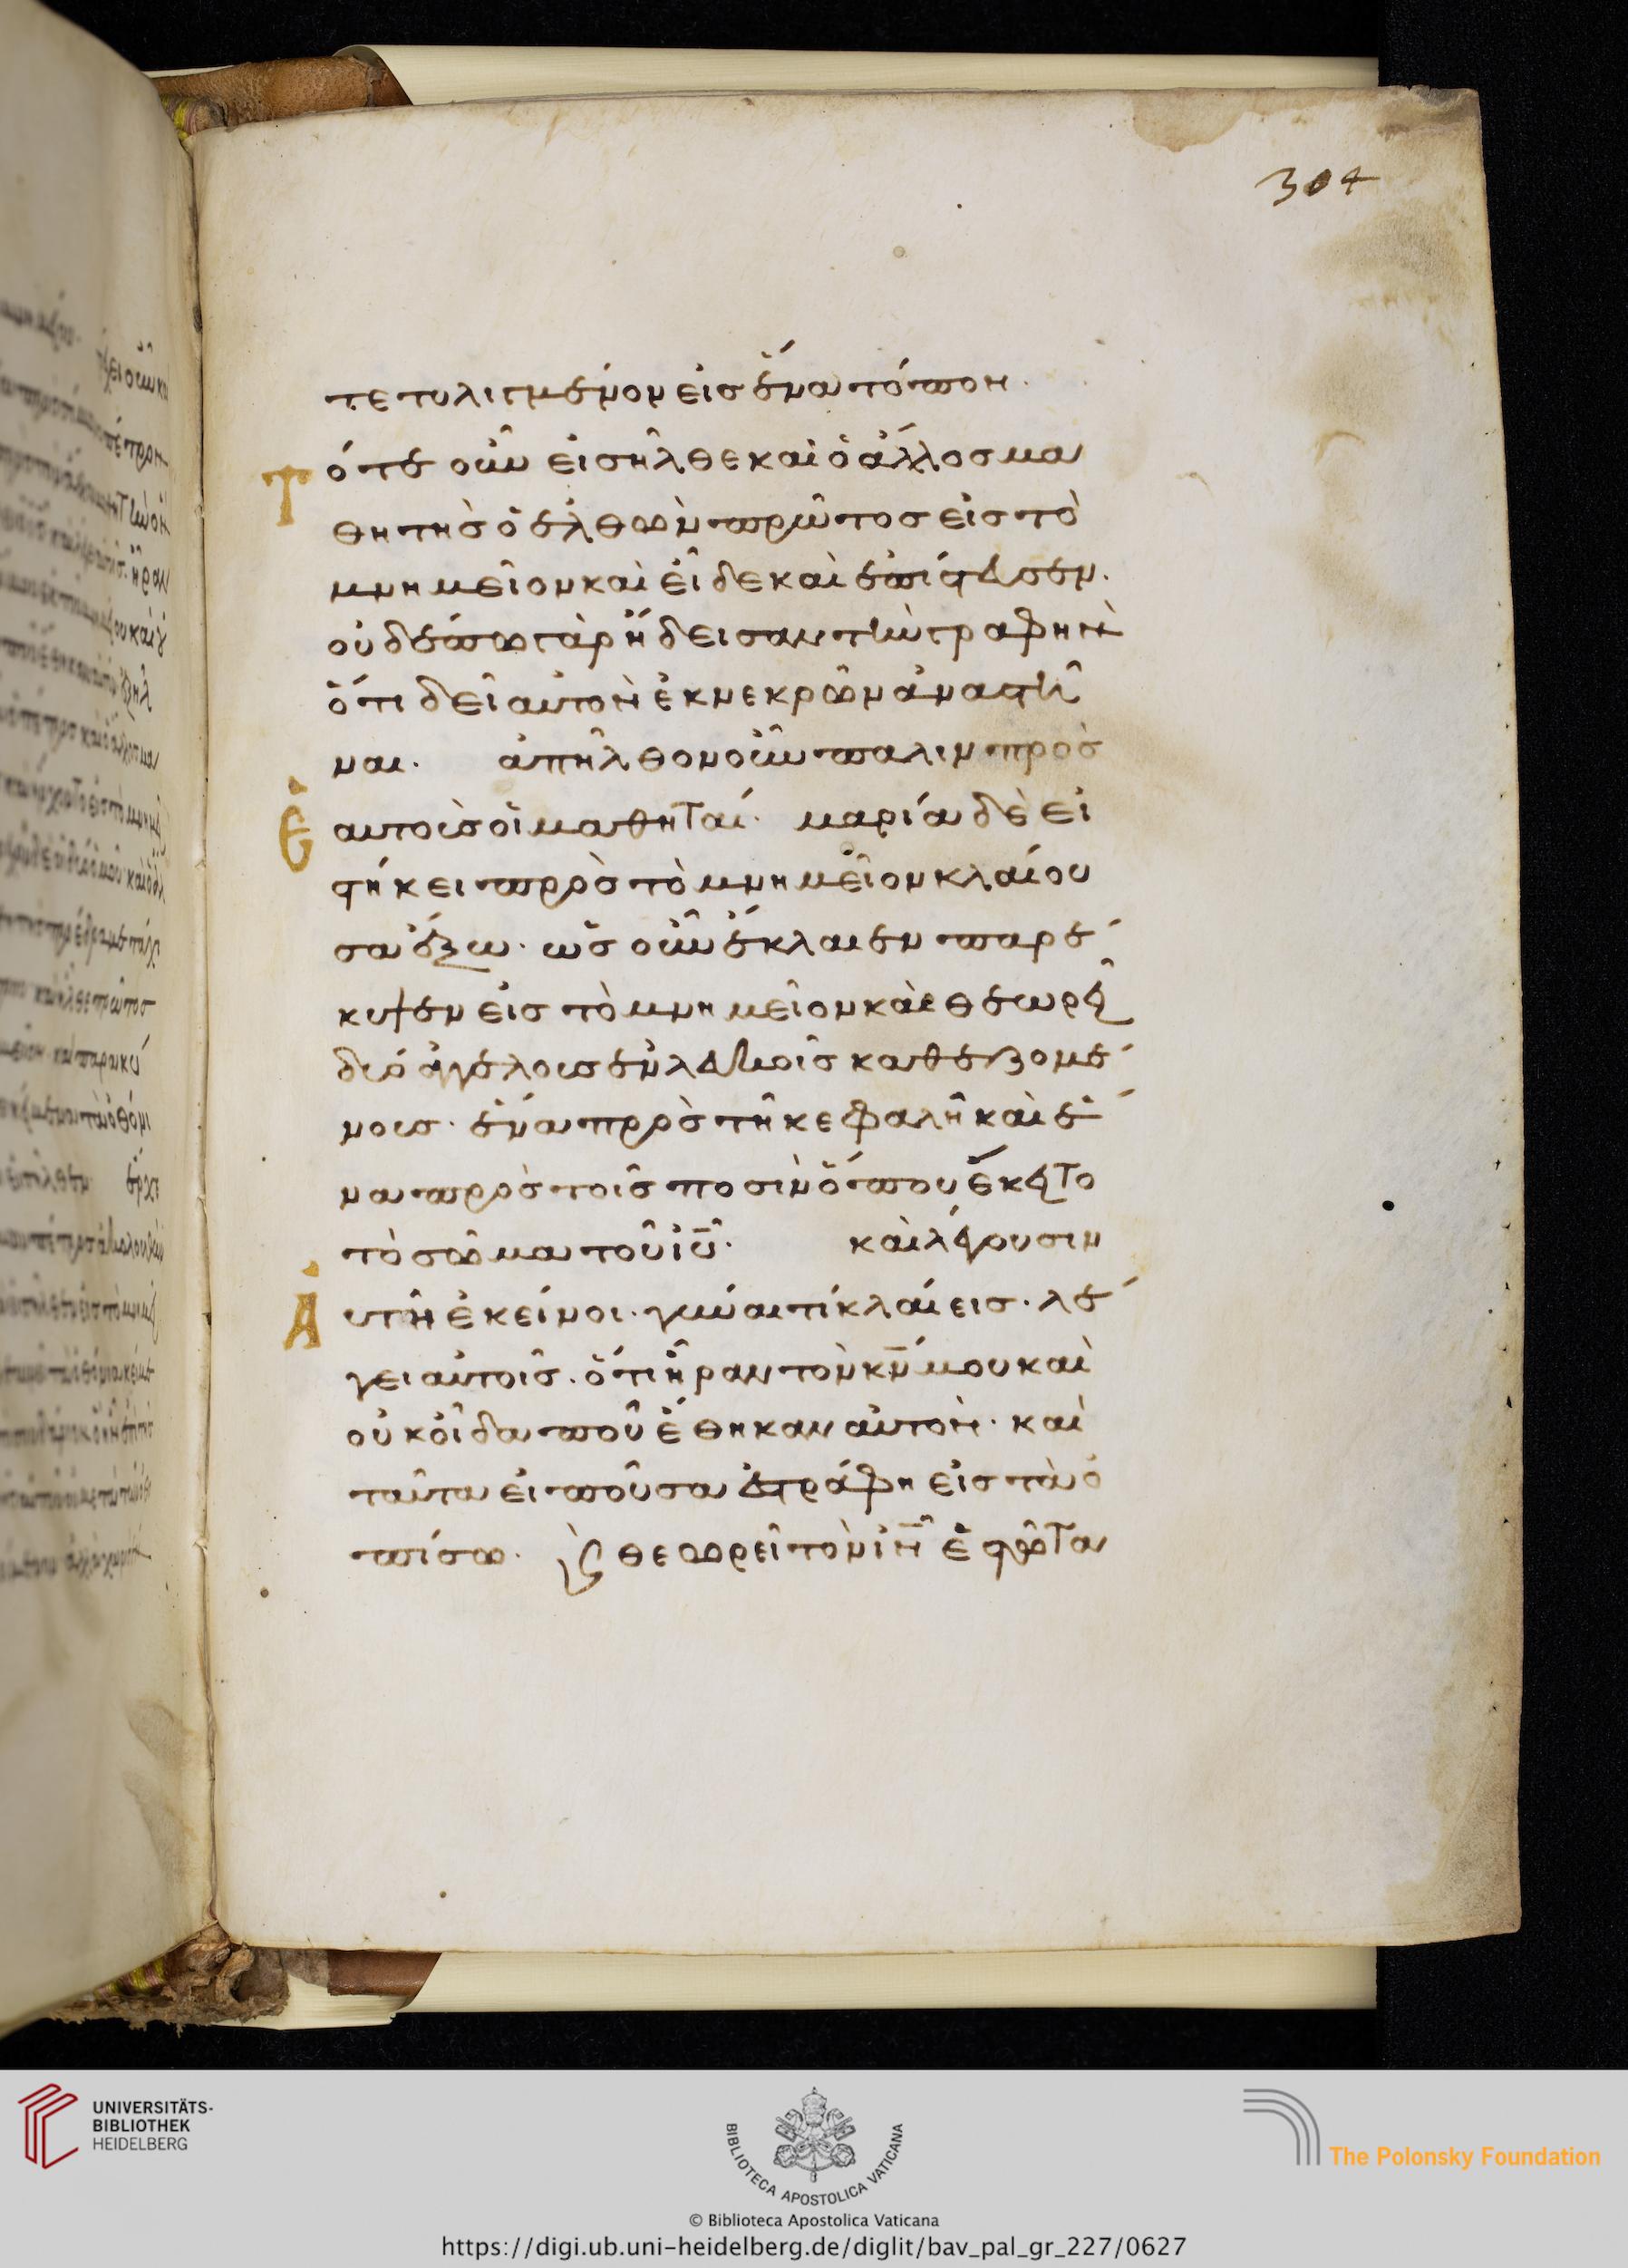 304
τετυλιγμένον εἰς ἕνα τόπον.
Τότε οὖν εἰσῆλθε καὶ ὁ ἄλλος μα
θητὴς ὁ ἐλθὼν πρῶτος εἰς τὸ
μνημεῖον καὶ εἶδε καὶ ἐπίστευσεν.
οὐδέπω γὰρ ᾔδεισαν τὴν γραφὴν
ὅτι δεῖ αὐτὸν ἐκ νεκρῶν ἀναστῆ
ναι. ἀπῆλθον οὖν παλιν πρὸς
Ἑαυτοὺς οἱ μαθηταί. μαρία δὲ εἱ
στήκει πρὸς τὸ μνημεῖον κλαίου
σα ἔξω. ὡς οὖν ἔκλαιεν παρέ
κυψεν εἰς τὸ μνημεῖον καὶ θεωρεῖ
δυό ἀγγέλους ἐν λευκοῖς καθεζομέ
νους. ἕνα πρὸς τῆ κεφαλῆ καὶ ἕ
να πρὸς τοῖς ποσὶν ὅπου ἔκειτο
τὸ σῶμα τοῦ ἰῦ. καὶ λέγουσιν
Ἀυτῆ ἐκείνοι. γύναι τί κλαίεις. λέ
γει αὐτοῖς. ὅτι ἦραν τὸν κν̄ μου καὶ
οὐκ οἶδα ποῦ ἔθηκαν αὐτὸν. καὶ
ταῦτα εἰποῦσα ἐστράφη εἰς τὰ ὀ
πίσω. ϗ θεωρεῖ τὸν ἰν̄ ἑστῶτα
UNIVERSITÄTS-
BIBLIOTHEK
HEIDELBERG
BIBLIOTECA APOSTOLICA VATICANA
The Polonsky Foundation
© Biblioteca Apostolica Vaticana
https://digi.ub.uni-heidelberg.de/diglit/bav_pal_gr_227/0627